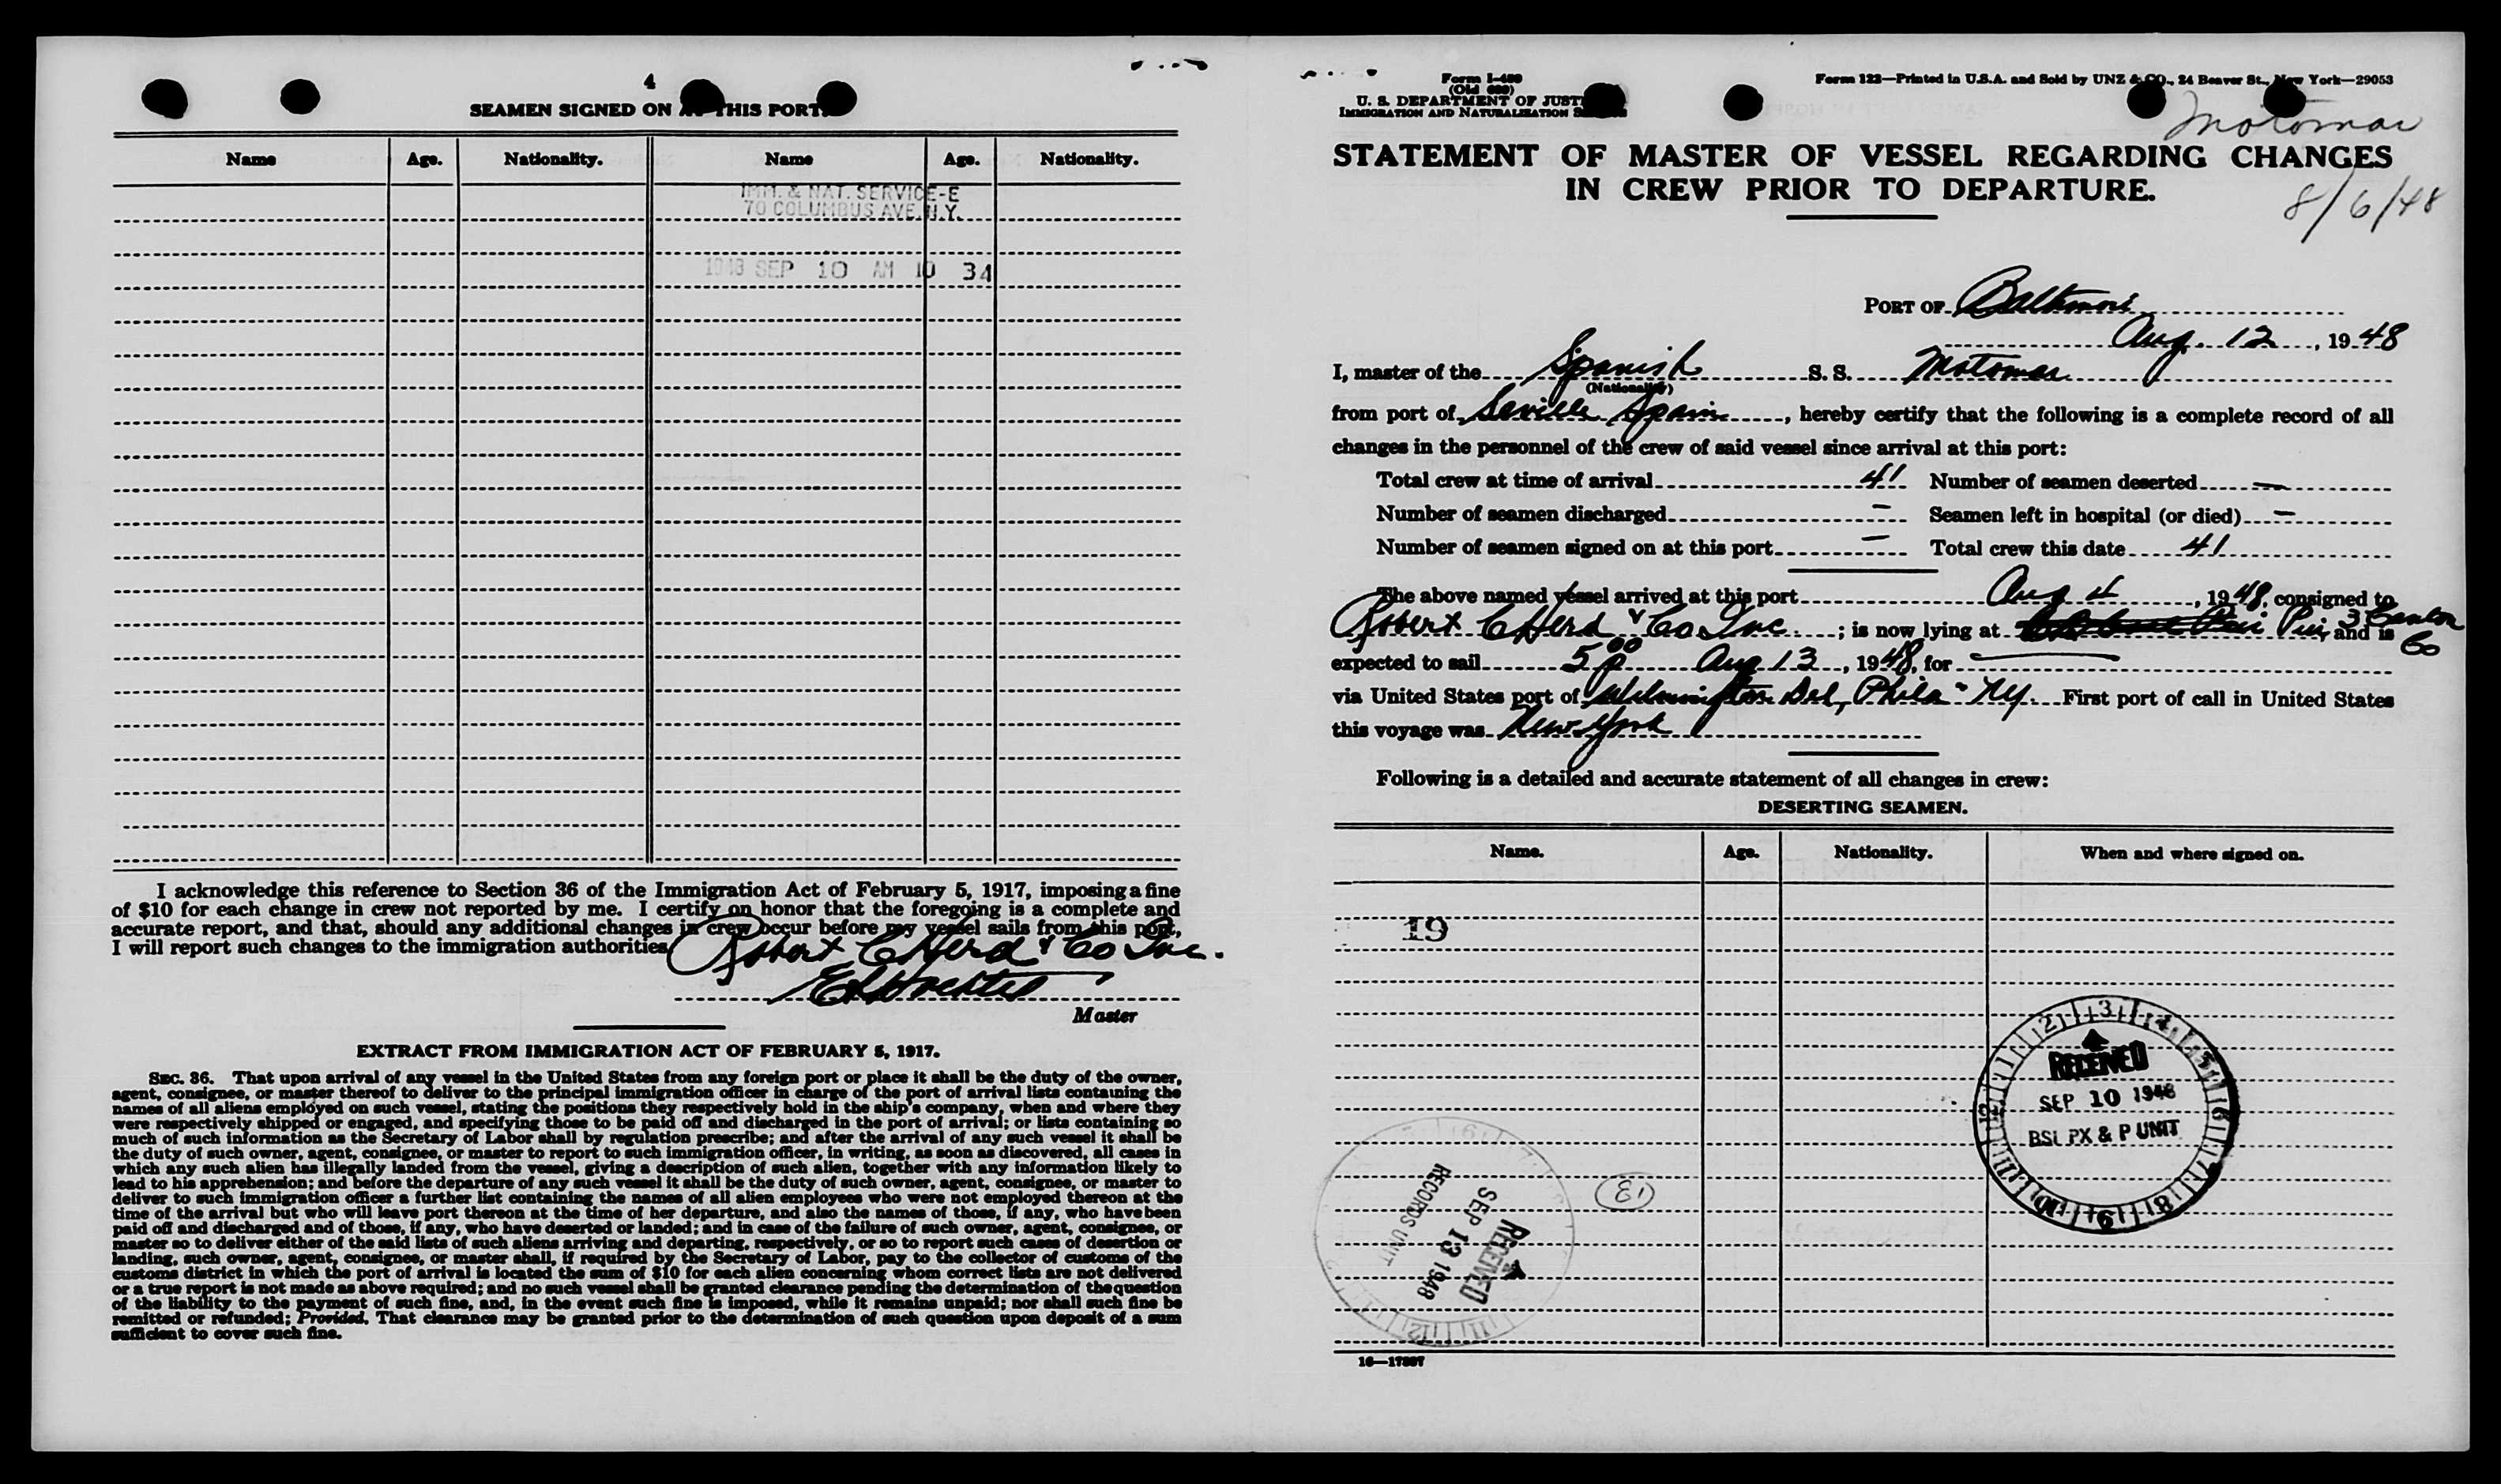 4
SEAMEN SIGNED ON AT THIS PORT.
Name Age. Nationality. Name Age. Nationality.
IMM. & NAT. SERVICE-E
70 COLUMBUS AVE. N.Y.
1948 SEP 10 AM 10 34
I acknowledge this reference to Section 36 of the Immigration Act of February 5, 1917, imposing a fine
of $10 for each change in crew not reported by me. I certify on honor that the foregoing is a complete and
accurate report, and that, should any additional changes in crew occur before my vessel sails from this port,
I will report such changes to the immigration authorities
Robert C Herd & Co Inc.
Master
EXTRACT FROM IMMIGRATION ACT OF FEBRUARY 5, 1917.
SEC. 36. That upon arrival of any vessel in the United States from any foreign port or place it shall be the duty of the owner,
agent, consignee, or master thereof to deliver to the principal immigration officer in charge of the port of arrival lists containing the
names of all aliens employed on such vessel, stating the positions they respectively hold in the ship's company, when and where they
were respectively shipped or engaged, and specifying those to be paid off and discharged in the port of arrival; or lists containing so
much of such information as the Secretary of Labor shall by regulation prescribe; and after the arrival of any such vessel it shall be
the duty of such owner, agent, consignee, or master to report to such immigration officer, in writing, as soon as discovered, all cases in
which any such alien has illegally landed from the vessel, giving a description of such alien, together with any information likely to
lead to his apprehension; and before the departure of any such vessel it shall be the duty of such owner, agent, consignee, or master to
deliver to such immigration officer a further list containing the names of all alien employees who were not employed thereon at the
time of the arrival but who will leave port thereon at the time of her departure, and also the names of those, if any, who have been
paid off and discharged and of those, if any, who have deserted or landed; and in case of the failure of such owner, agent, consignee, or
master so to deliver either of the said lists of such aliens arriving and departing, respectively, or so to report such cases of desertion or
landing, such owner, agent, consignee, or master shall, if required by the Secretary of Labor, pay to the collector of customs of the
customs district in which the port of arrival is located the sum of $10 for each alien concerning whom correct lists are not delivered
or a true report is not made as above required; and no such vessel shall be granted clearance pending the determination of the question
of the liability to the payment of such fine, and, in the event such fine is imposed, while it remains unpaid; nor shall such fine be
remitted or refunded; Provided, That clearance may be granted prior to the determination of such question upon deposit of a sum
sufficient to cover such fine.
Form I-489
(Old 689)
U. S. DEPARTMENT OF JUSTICE
IMMIGRATION AND NATURALIZATION SERVICE
Form 122—Printed in U.S.A. and Sold by UNZ & CO., 24 Beaver St., New York—29053
Motomar
STATEMENT OF MASTER OF VESSEL REGARDING CHANGES
IN CREW PRIOR TO DEPARTURE.
8/6/48
PORT OF Baltimore
Aug. 12, 1948
I, master of the Spanish S. S. Motomar
(Nationality)
from port of Seville Spain, hereby certify that the following is a complete record of all
changes in the personnel of the crew of said vessel since arrival at this port:
Total crew at time of arrival 41 Number of seamen deserted —
Number of seamen discharged — Seamen left in hospital (or died) —
Number of seamen signed on at this port — Total crew this date 41
The above named vessel arrived at this port Aug 4, 1948, consigned to
Robert C Herd & Co Inc; is now lying at Pier 3 Canton Co, and is
expected to sail 5 00 p Aug 13, 1948, for —
via United States port of Wilmington Del, Phila - NY. First port of call in United States
this voyage was New York
Following is a detailed and accurate statement of all changes in crew:
DESERTING SEAMEN.
Name. Age. Nationality. When and where signed on.
19
RECEIVED
SEP 10 1948
BSI PX & P UNIT
RECEIVED
SEP 13 1948
RECORDS UNIT
16—17897